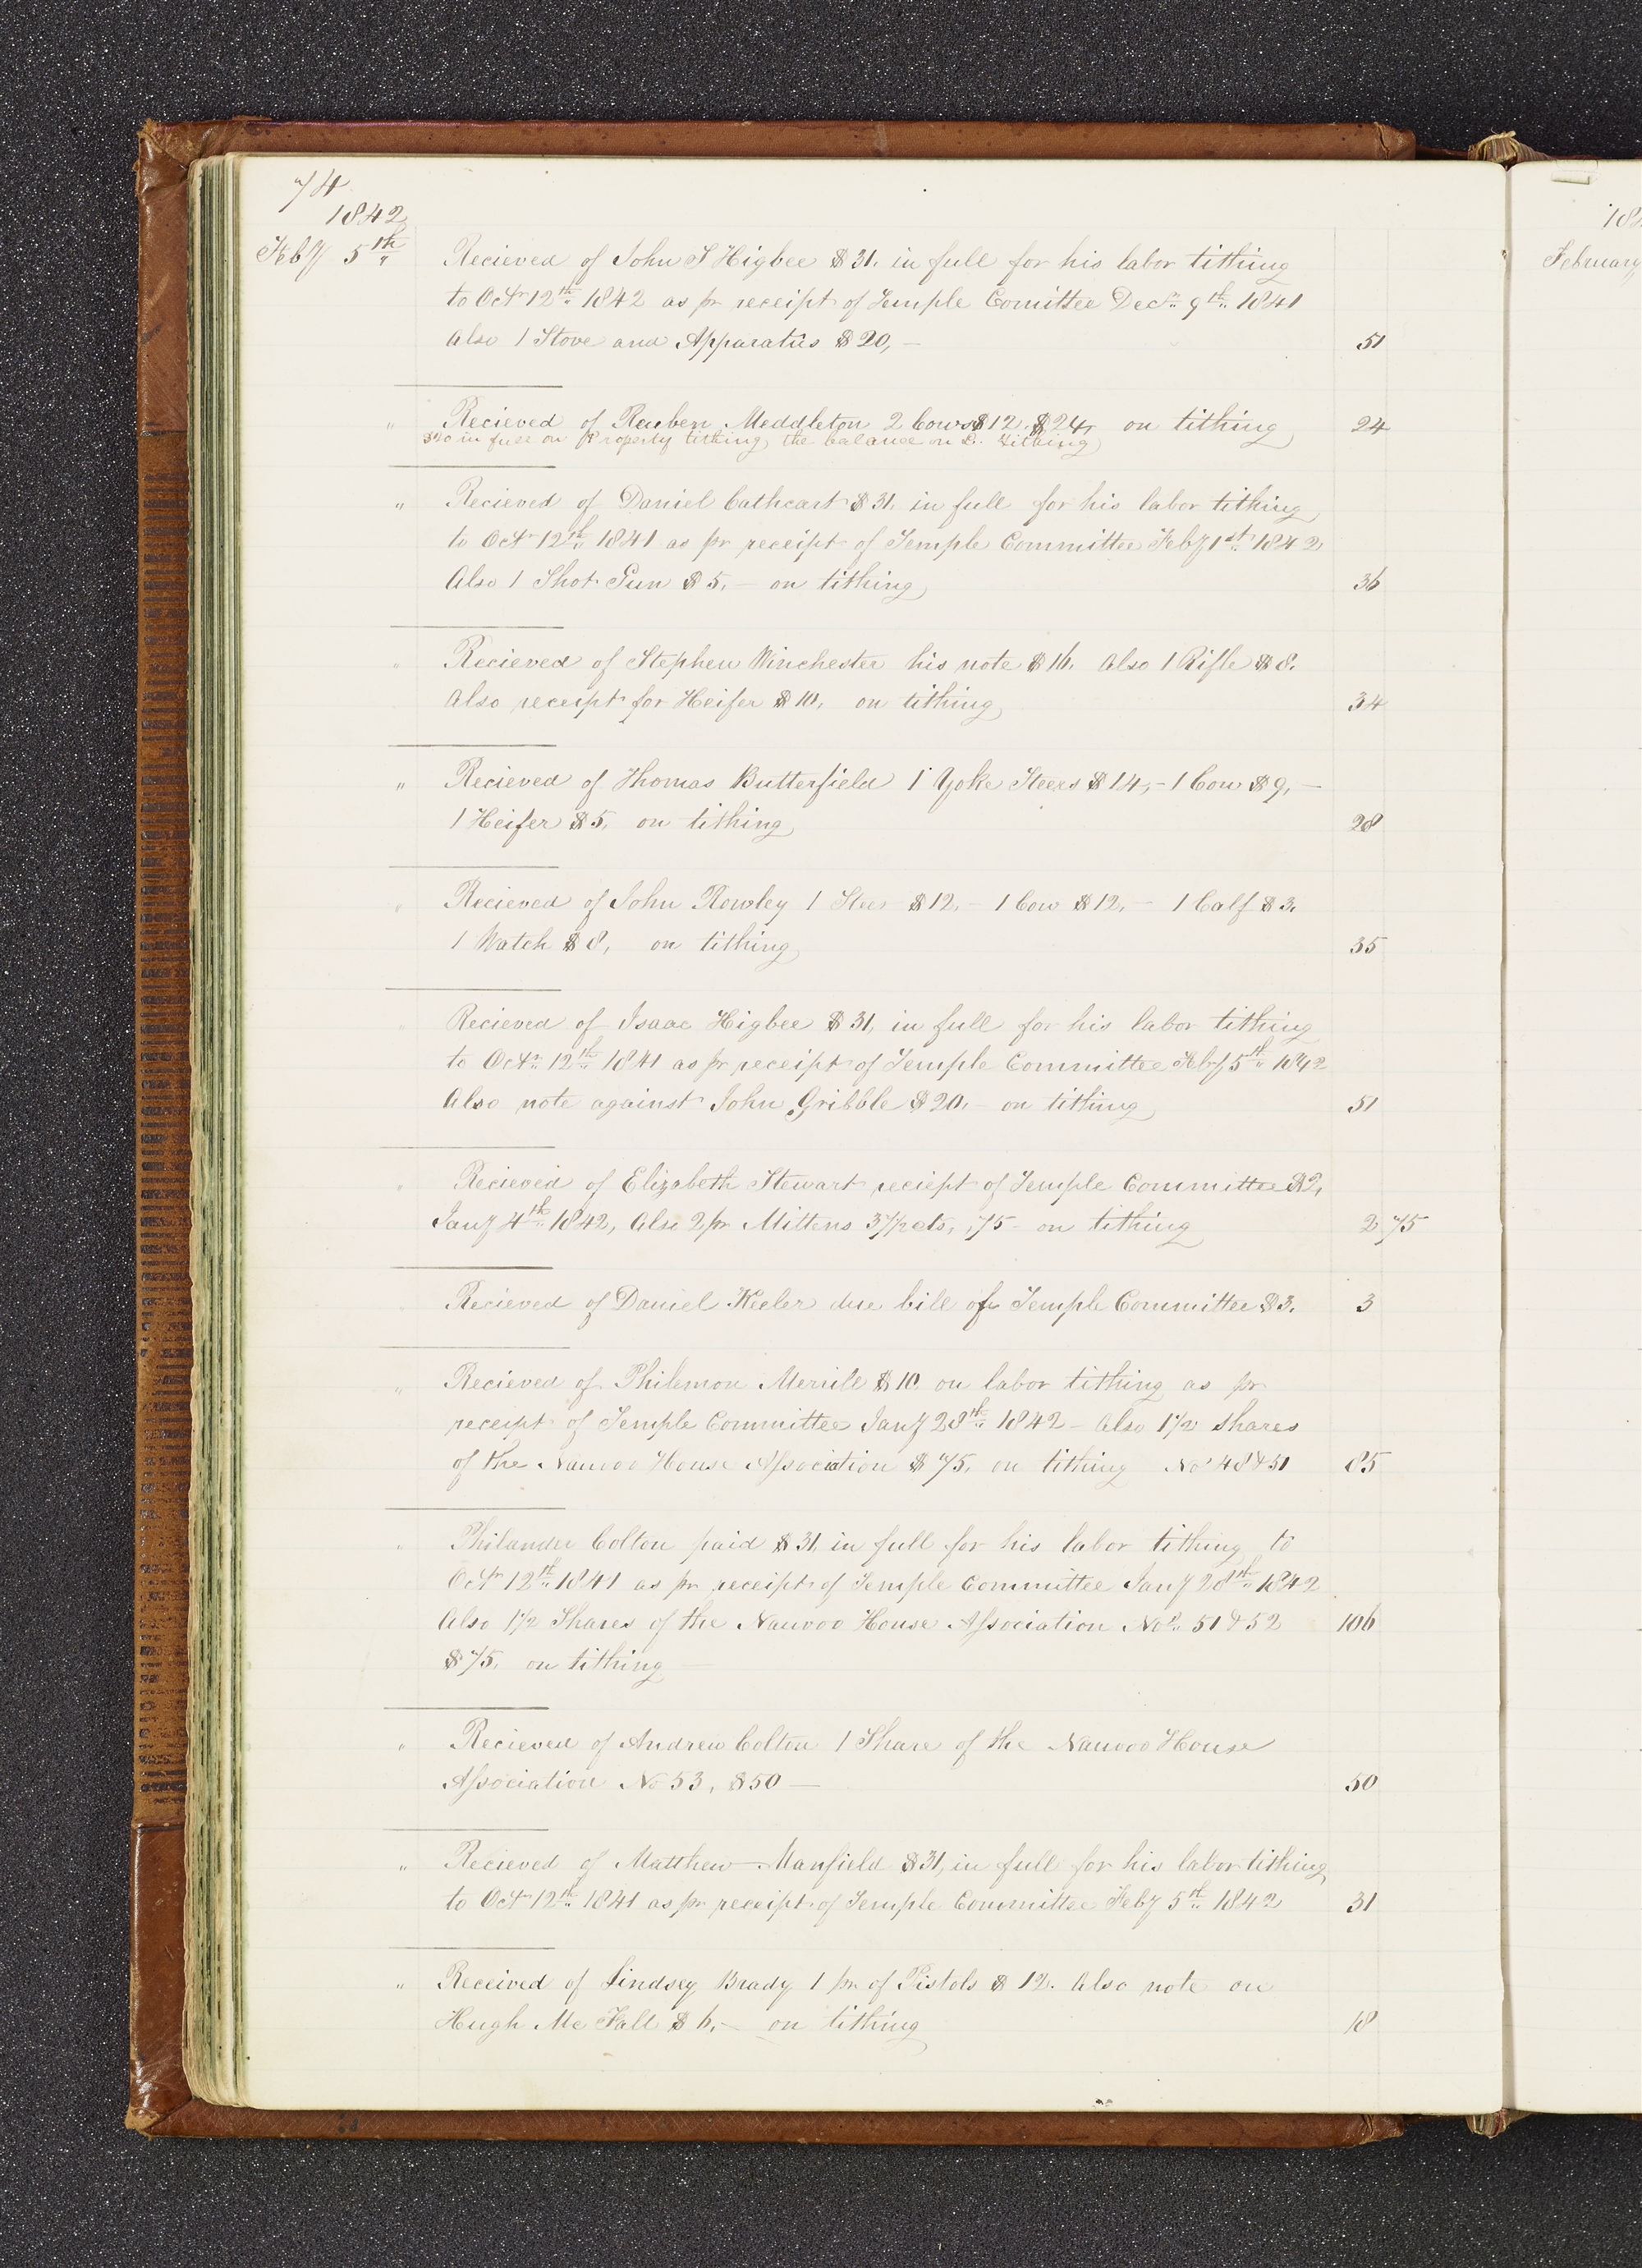 74
1842
Feby 5th Recieved of John S Higbee $31. in full for his labor tithing
to Octr 12th 1842 as pr receipt of Temple Comittee Decr 9th 1841
Also 1 Stove and Apparatus $20,— 51
" Recieved of Reuben Meddleton 2 Cows $12. $24, on tithing 24
in full on Property tithing, the balance on L. tithing
" Recieved of Daniel Cathcart $31, in full for his labor tithing
to Octr 12th 1841 as pr receipt of Temple Committee Feby 1st 1842
Also 1 Shot Gun $5,— on tithing 36
" Recieved of Stephen Winchester his note $16. Also 1 Rifle $8.
Also receipt for Heifer $10, on tithing 34
" Recieved of Thomas Butterfield 1 Yoke Steers $14,— 1 Cow $9,—
1 Heifer $5, on tithing 28
" Recieved of John Rowley 1 Steer $12.— 1 Cow $12,— 1 Calf $3.
1 Watch $8, on tithing 35
" Recieved of Isaac Higbee $31, in full for his labor tithing
to Octr 12th 1841 as pr receipt of Temple Committee Feby 5th 1842
Also note against John Gribble $20.— on tithing 51
" Recieved of Elizabeth Stewart reciept of Temple Committee $2,
Jany 4th 1842, Also 2 pr Mittens 37½cts, ,75— on tithing 2 75
Recieved of Daniel Keeler due bill of Temple Committee $3. 3
" Recieved of Philemon Merrile $10 on labor tithing as pr
receipt of Temple Committee Jany 28th 1842 — Also 1½ shares
of the Nauvoo House Association $75, on tithing No 48 & 51 85
" Philander Colton paid $31, in full for his labor tithing to
Octr 12th 1841 as pr receipt of Temple Committee Jany 28th 1842
Also 1½ Shares of the Nauvoo House Association Nos 51 & 52 106
$75, on tithing —
" Recieved of Andrew Colton 1 Share of the Nauvoo House
Association No 53, $50 — 50
" Recieved of Matthew Manfield $31, in full for his labor tithing
to Octr 12th 1841 as pr receipt of Temple Committee Feby 5th 1842 31
" Received of Lindsey Brady 1 pr of Pistols $12. Also note on
Hugh Mc Fall $6,— on tithing 18
182
February